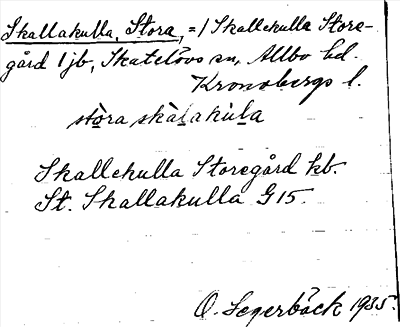 Skallakulla, Stora, =/ Skallekulla Store-
gård 1 jb, Skatelövs sn, Allbo hd.
Kronobergs l.
stòra skàlakùla
Skallekulla Storegård kb.
St. Skallakulla G15.
O. Segerbäck 1935.